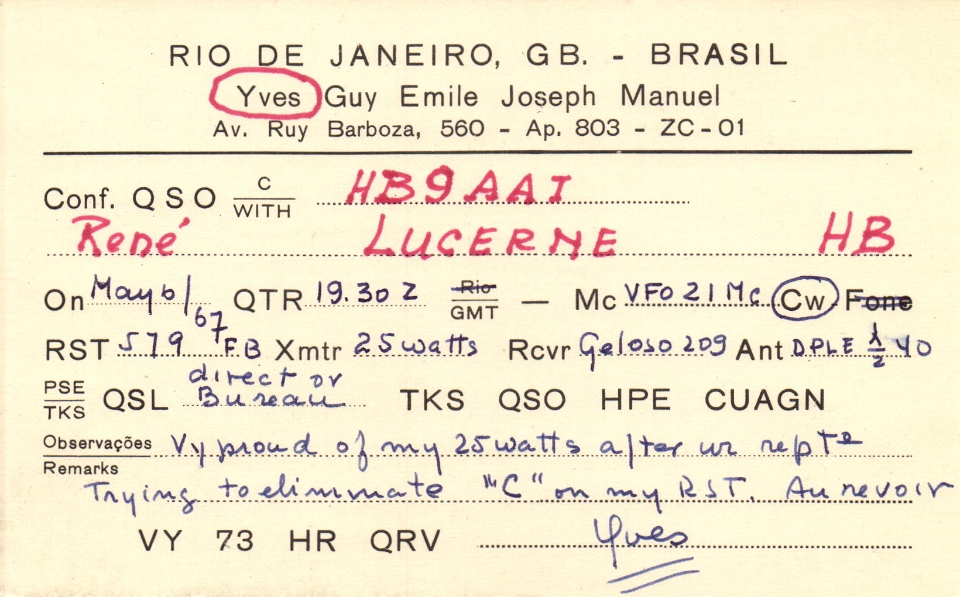 RIO DE JANEIRO, GB. - BRASIL
Yves Guy Emile Joseph Manuel
Av. Ruy Barboza, 560 - Ap. 803 - ZC-01
Conf. QSO C WITH HB9AAI
René LUCERNE HB
On May 6/67 QTR 19.30 Z Rio GMT — Mc VFO 21 Mc Cw Fone
RST 579 FB Xmtr 25 watts Rcvr Geloso 209 Ant DPLE λ/2 40
PSE TKS QSL direct or Bureau TKS QSO HPE CUAGN
Observações Vy proud of my 25 watts after ur rept
Remarks Trying to eliminate "C" on my RST. Au revoir
VY 73 HR QRV Yves